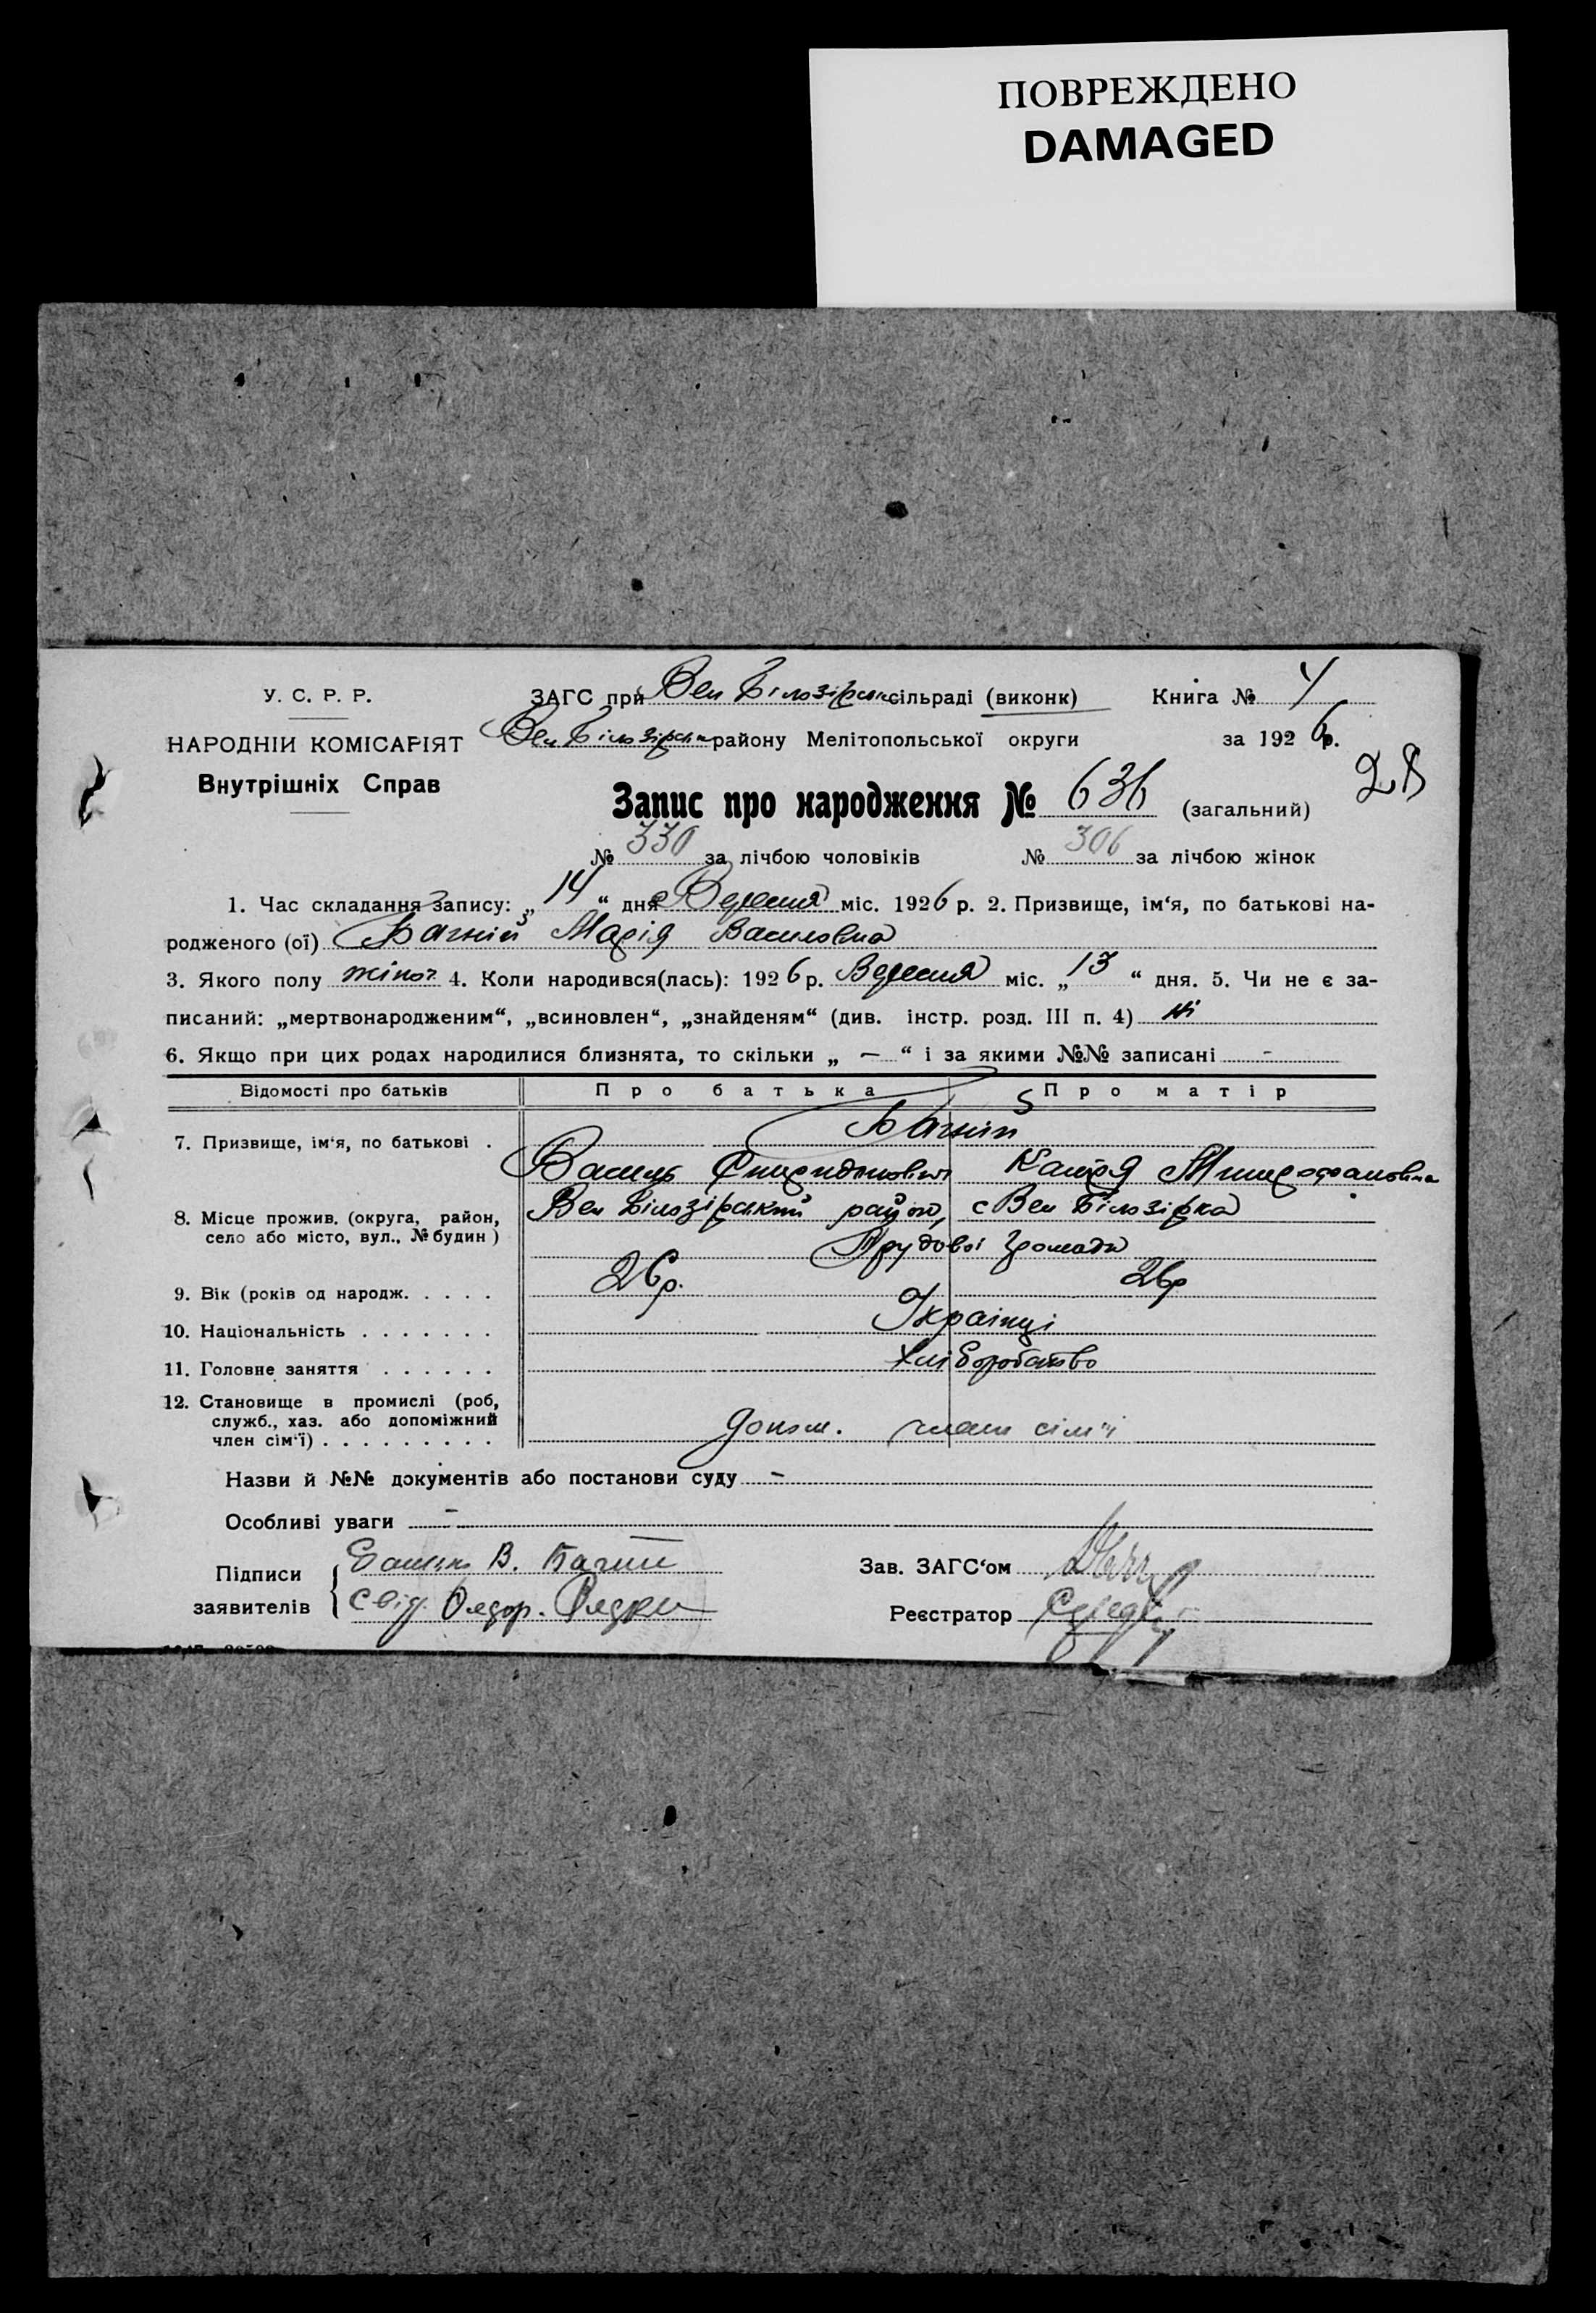 ПОВРЕЖДЕНО
DAMAGED
У. С. Р. Р.
ЗАГС при Вел Білозірськ сільраді (виконк)
Книга № 4
НАРОДНІЙ КОМІСАРІЯТ
Вел Білозірськ району Мелітопольської округи
за 1926 р.
Внутрішніх Справ
28
Запис про народження № 636 (загальний)
№ 330 за лічбою чоловіків № 306 за лічбою жінок
1. Час складання запису: „ 14 “ дня Вересня міс. 1926 р. 2. Призвище, ім‘я, по батькові на-
родженого (ої) Багній Марія Василовна
3. Якого полу жіноч 4. Коли народився(лась): 1926 р. Вересня міс. „ 13 “ дня. 5. Чи не є за-
писаний: „мертвонародженим“, „всиновлен“, „знайденям“ (див. інстр. розд. III п. 4) ні
6. Якщо при цих родах народилися близнята, то скільки „ — “ і за якими №№ записані -
Відомості про батьків
Про батька
Про матір
7. Призвище, ім‘я, по батькові .
Багній
Василь Спиридонович
Катря Митрофановна
8. Місце прожив. (округа, район,
село або місто, вул., № будин )
Вел Білозірський район, с Вел Білозірка
Трудової громади
9. Вік (років од народж. . . . .
26 р.
26 р
10. Національність . . . . . . .
Українці
11. Головне заняття . . . . . .
Хліборобство
12. Становище в промислі (роб,
служб., хаз. або допоміжний
член сім‘ї) . . . . . . . . .
допом. член сім'ї
Назви й №№ документів або постанови суду -
Особливі уваги -
Підписи
заявителів
В. Багній
свід.
Зав. ЗАГС‘ом
Реєстратор